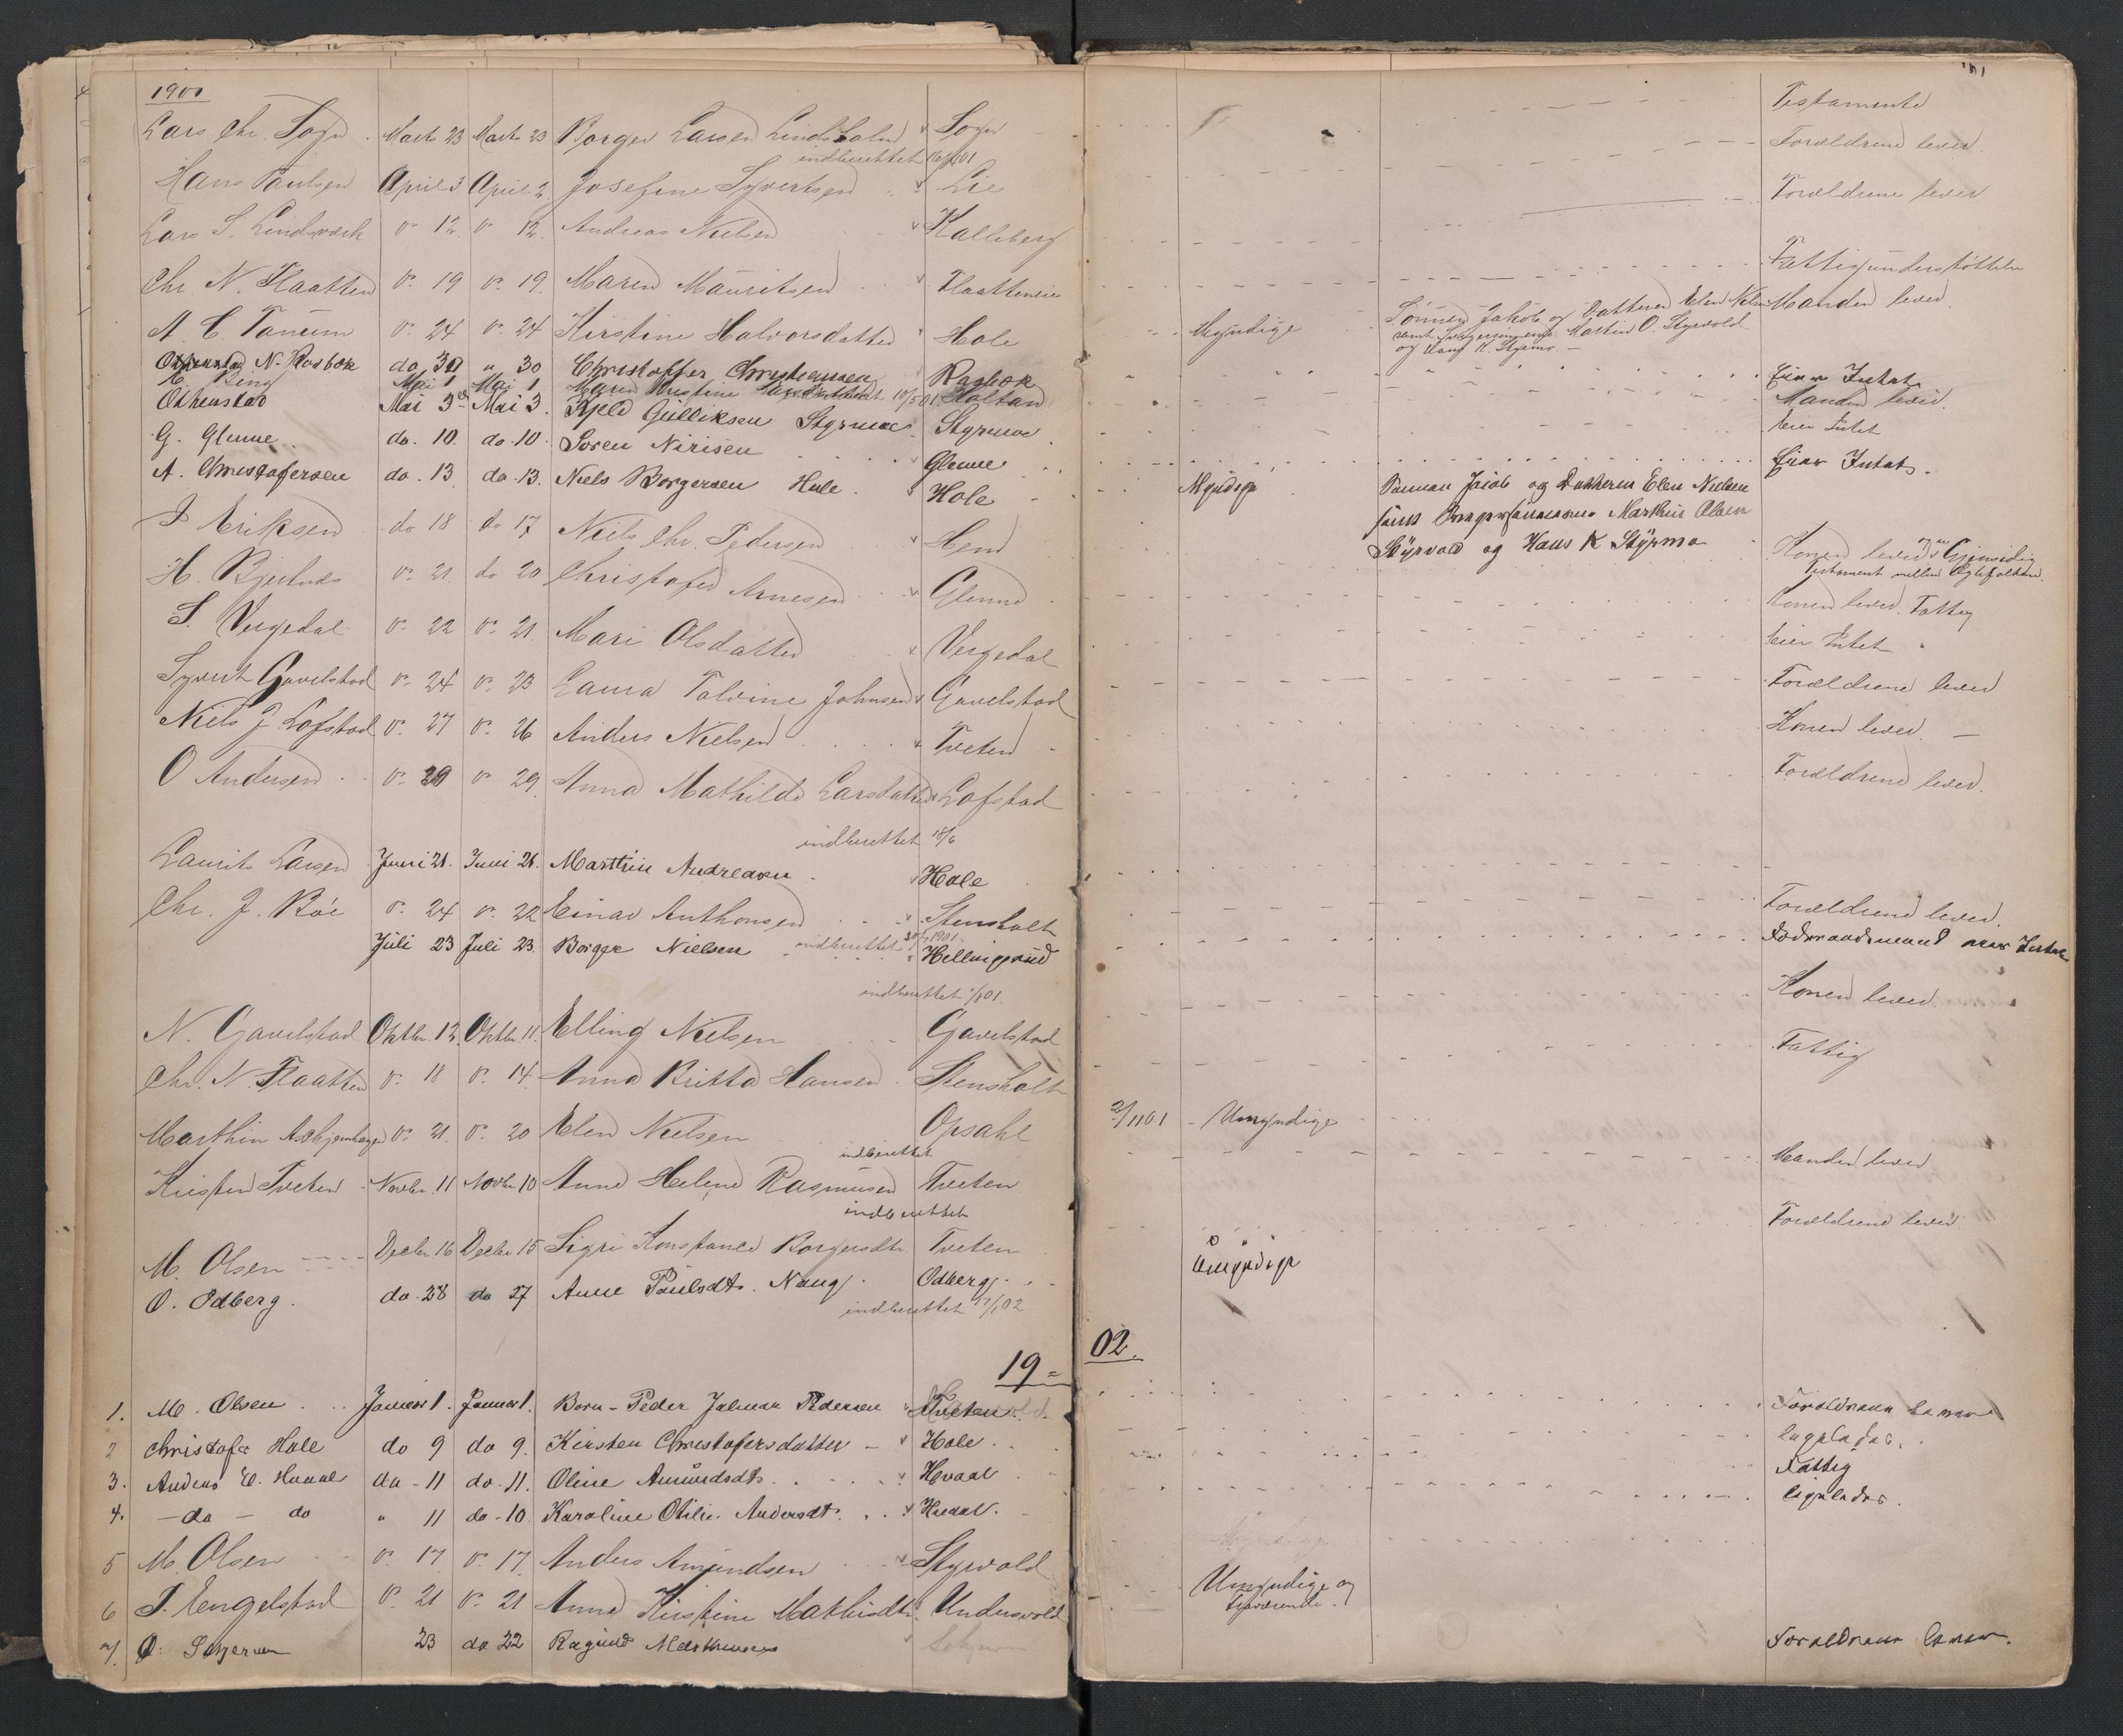 1901
Lars Chr. Sogn Marts 23 Marts 23 Borger Larsen Lindholm Sogn Testamente
indberettet
Hans Paulsen April 3 April 2 Josefine Syvertsen Lie Forældrene lever.
Lars S. Lindsverk " 12 " 12. Andreas Nielsen Kalleberg Forældrene lever
Chr. N. Flaatten " 19 " 19. Maren Mauritsen Flaatteneie Fattigunderstøttelse
A C Tanum " 24 " 24 Kirstine Halvorsdatter Hole Myndige Sønnen Jakob og Datteren Elen Nielsen Manden lever
samt Svigersønnerne Martin O. Styrvold
og Hans K. Styrmo
N. Rosbok do 30 " 30 Christoffer Christensen Rosbok Eier Intet
Berg Mai 1 Mai 1 Maren Kirstine Holtan Manden lever.
Mai 3 Mai 3. Kjeld Gulliksen Styrmoe Styrmoe eier Intet
G. Glenne do. 10. do. 10. Soren Glenne Eier Intet.
A. Christofersen do. 13 do. 13. Niels Borgersen Hole. Hole Myndige Sønnen Jacob og Datteren Elen Nielsen
samt Svigersønnerne Marthin Olsen
Styrvold og Hans K Styrmo
I Eriksen do 18 do 17 Niels Chr. Pedersen Hem Konen lever Gjensidig
Testament mellem Ægtefolkene.
H. Bjerknes " 21. do 20 Christofer Arnesen Glenne Konen lever. Fattig
S. Vegedal " 22 " 21. Mari Olsdatter Vegedal eier Intet
Syvert Gavelstad " 24 " 23 Laura Tolvine Johnsen Gavelstad Forældrene lever
Niels J. Lofstad " 27 " 26 Anders Nielsen Tveten Konen lever.
O Andersen " 29 " 29. Anna Mathilde Larsdatter Lofstad Forældrene lever.
indberettet 18/6
Laurits Larsen Juni 21. Juni 21. Marthin Andreasen Hole
Chr. J. Böe " 24 " 22 Einar Anthonsen Stensholt Forældrene lever.
Juli 23 Juli 23 Borger Nielsen indberettet 1901. Hellingsrud eier Intet
indberettet
N. Gavelstad Oktbr. 12. Oktbr. 11. Elling Nielsen Gavelstad Konen lever
Chr. N. Flaatten " 18 " 14. Anna Britta Hansen Stensholt Fattig
Marthin " 21. " 20 Elen Nielsen Opsahl 2/1101 Umyndige
indberettet
Kristen Tveten Novbr. 11 Novbr 10 Anne Helene Rasmusen Tveten Manden lever
indberettet
M. Olsen Decbr 16 Decbr 15 Sigri Konstance Borgersdtr. Tveten Forældrene lever
O. Odberg. do. 28 do 27 Anne Paulsdtr. Haug. Odberg. Umyndige
indberettet 02
19 02.
1. M. Olsen Januar 1. Januar 1. Barn - Peder Jalmar Pedersen Tveten. Forældrene lever
2 Christofer Hole do 9 do 9. Kirsten Christofersdatter Hole. ligeledes.
3. Anders E. Hvaal do - 11 do. 11. Oline Amundsdtr. Hvaal Fattig
4. - do - do " 11 do - 10. Karoline Otilie Andersdtr. Hvaal. ligeledes.
5 M. Olsen " 17 " 17. Anders Amundsen Styrvold
6 J. Engelstad " 21 " 21 Anna Kirstine Mathisdtr. Undersvold Umyndige og
7. O. 23 do 22 Ragnild Marthinsen Forældrene lever.